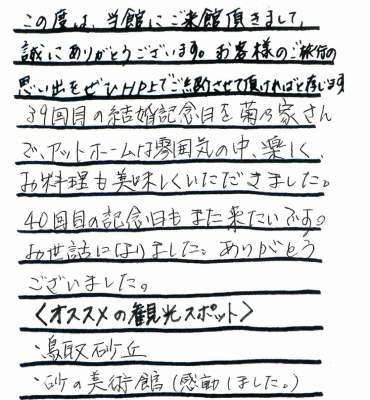 この度は、当館にご来館頂きまして、
誠にありがとうございます。お客様のご旅行の
思い出をぜひHP上でご紹介させて頂ければと存じます
39回目の結婚記念日を菊乃家さん
で、アットホームな雰囲気の中、楽しく、
お料理も美味しくいただきました。
40回目の記念日もまた来たいです。
お世話になりました。ありがとう
ございました。
〈オススメの観光スポット〉
・鳥取砂丘
・砂の美術館(感動しました。)